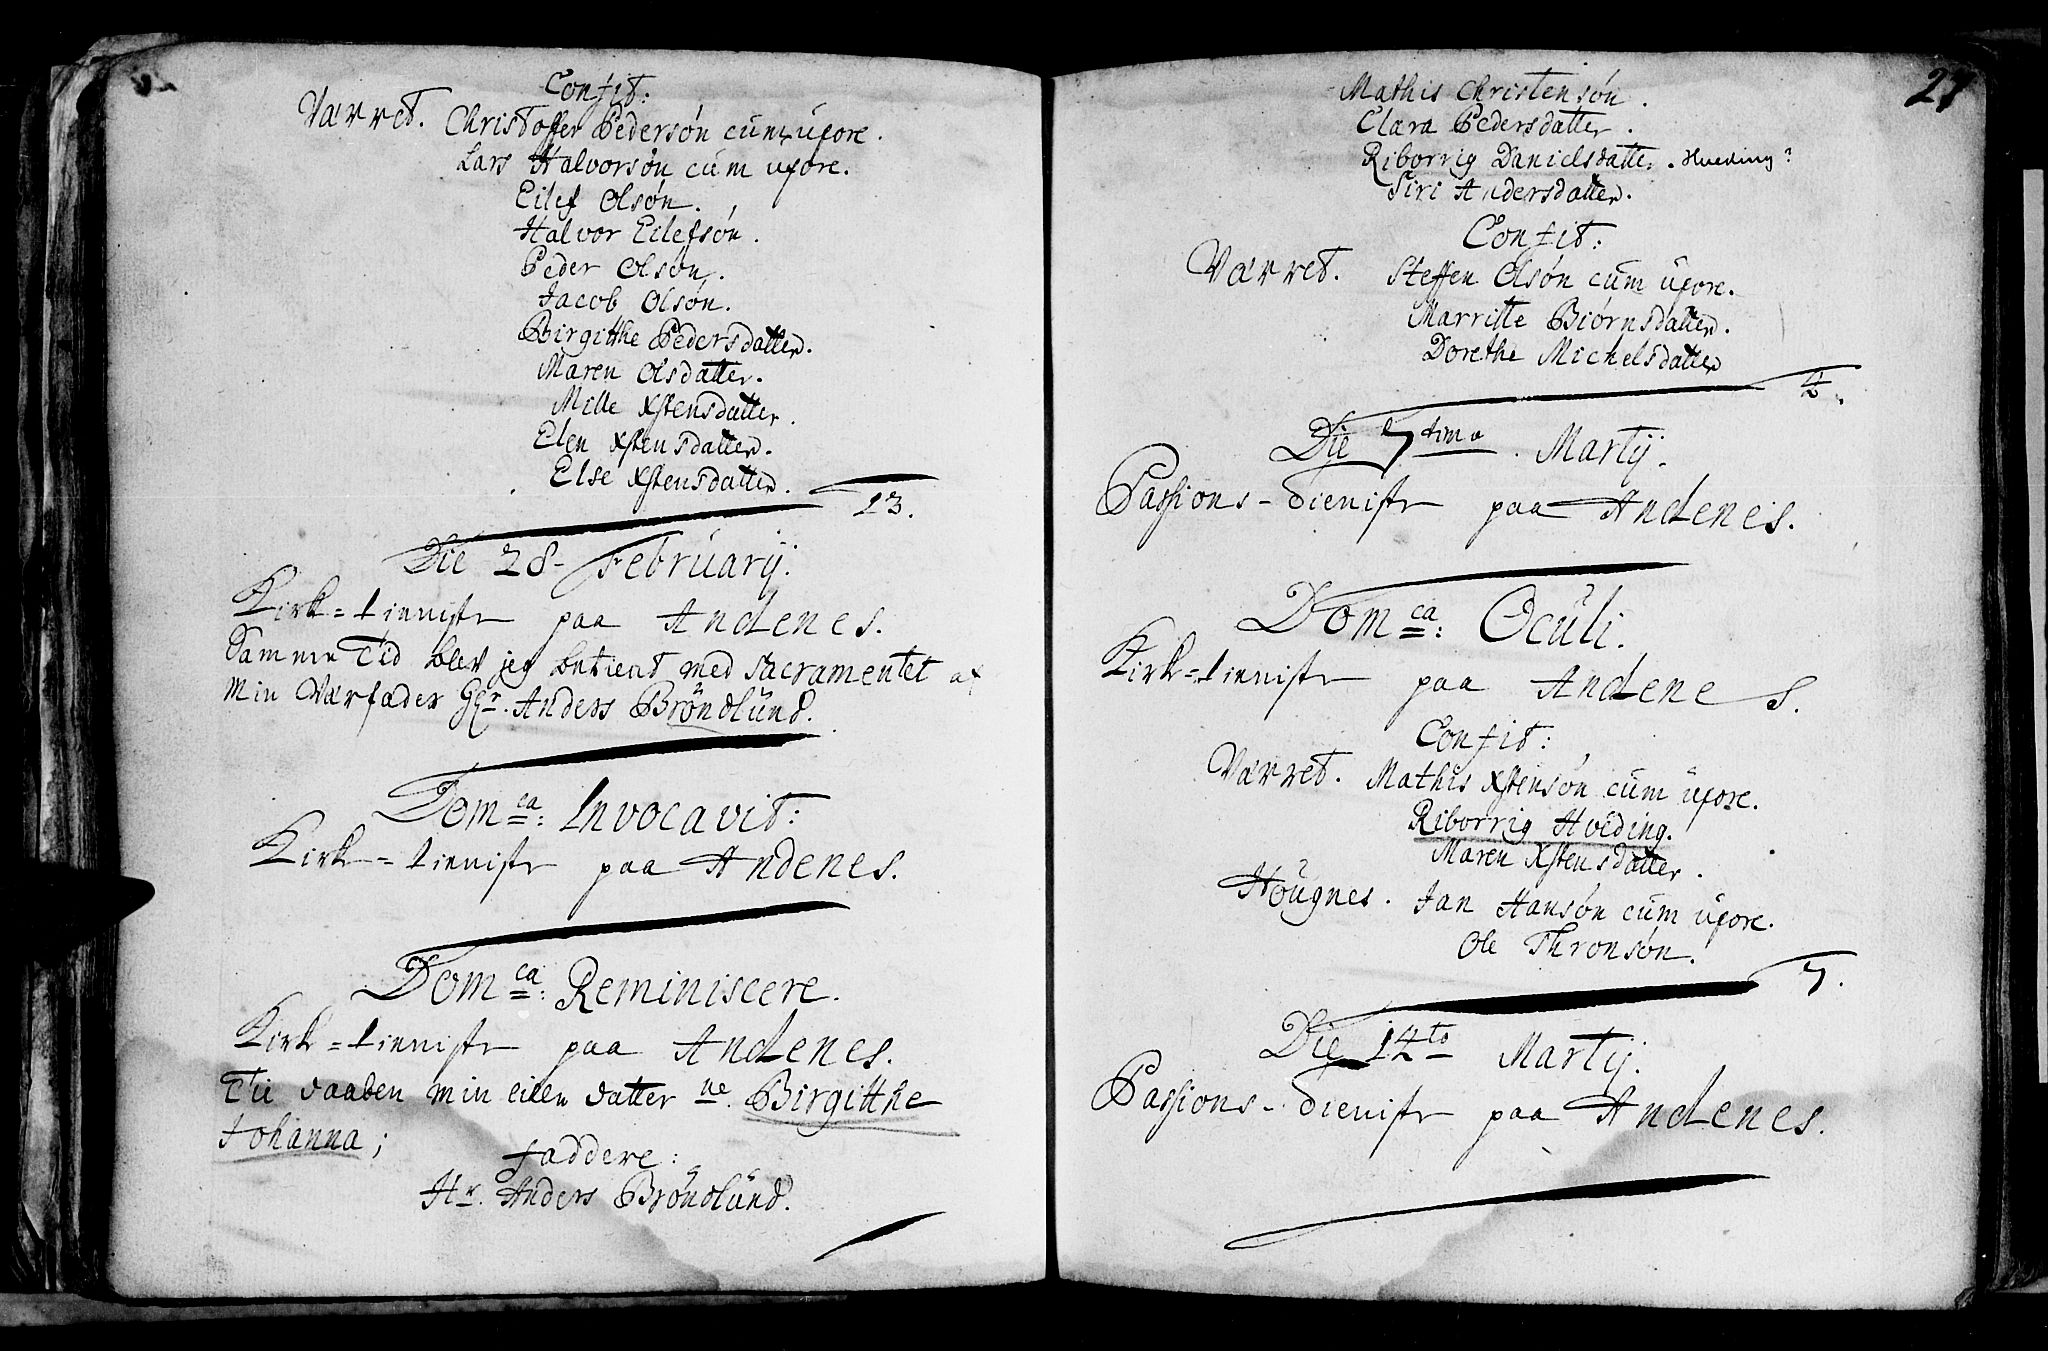 Confit:
Værret. Christoffer Pedersøn cum uxore.
Lars Halvorsøn cum uxore.
Eilef Olsøn.
Halvor Eilefsøn.
Peder Olsøn.
Jacob Olsøn.
Birgitthe Pedersdatter.
Maren Olsdatter.
Mille Xstensdatter.
Elen Xstensdatter.
Else Xstensdatter.
13.
Die 28 - Februarij.
Kirk=tienniste paa Andenes.
Samme Tid blev jeg betient med Sacramentet af
Min Værfader Hr. Anders Bröndlund.
Dom=ca: Invocavit:
Kirk=tienniste paa Andenes.
Dom=ca: Reminiscere.
Kirk=tienniste paa Andenes.
Til daaben min eilen datter ne. Birgitthe
Johanna;
Faddere:
Hr. Anders Bröndlund.
27
Mathis Christensøn.
Clara Pedersdatter.
Riborrig Danielsdatter. Hveding?
Siri Andersdatter.
Confit:
Værret. Steffen Olsøn cum uxore.
Marritte Biørnsdatter.
Dorethe Michelsdatter
4.
Die 7tima. Martij.
Passions-dieniste paa Andenes.
Dom=ca: Oculi.
Kirk=tienniste paa Andenes.
Confit:
Værret. Mathis Xstensøn cum uxore.
Riborrig Hveding.
Maren Xstensdatter.
Hougnes. Jan Hansøn cum uxore.
Ole Thronsøn.
7.
Die 14to Martij.
Passions-dieniste paa Andenes.